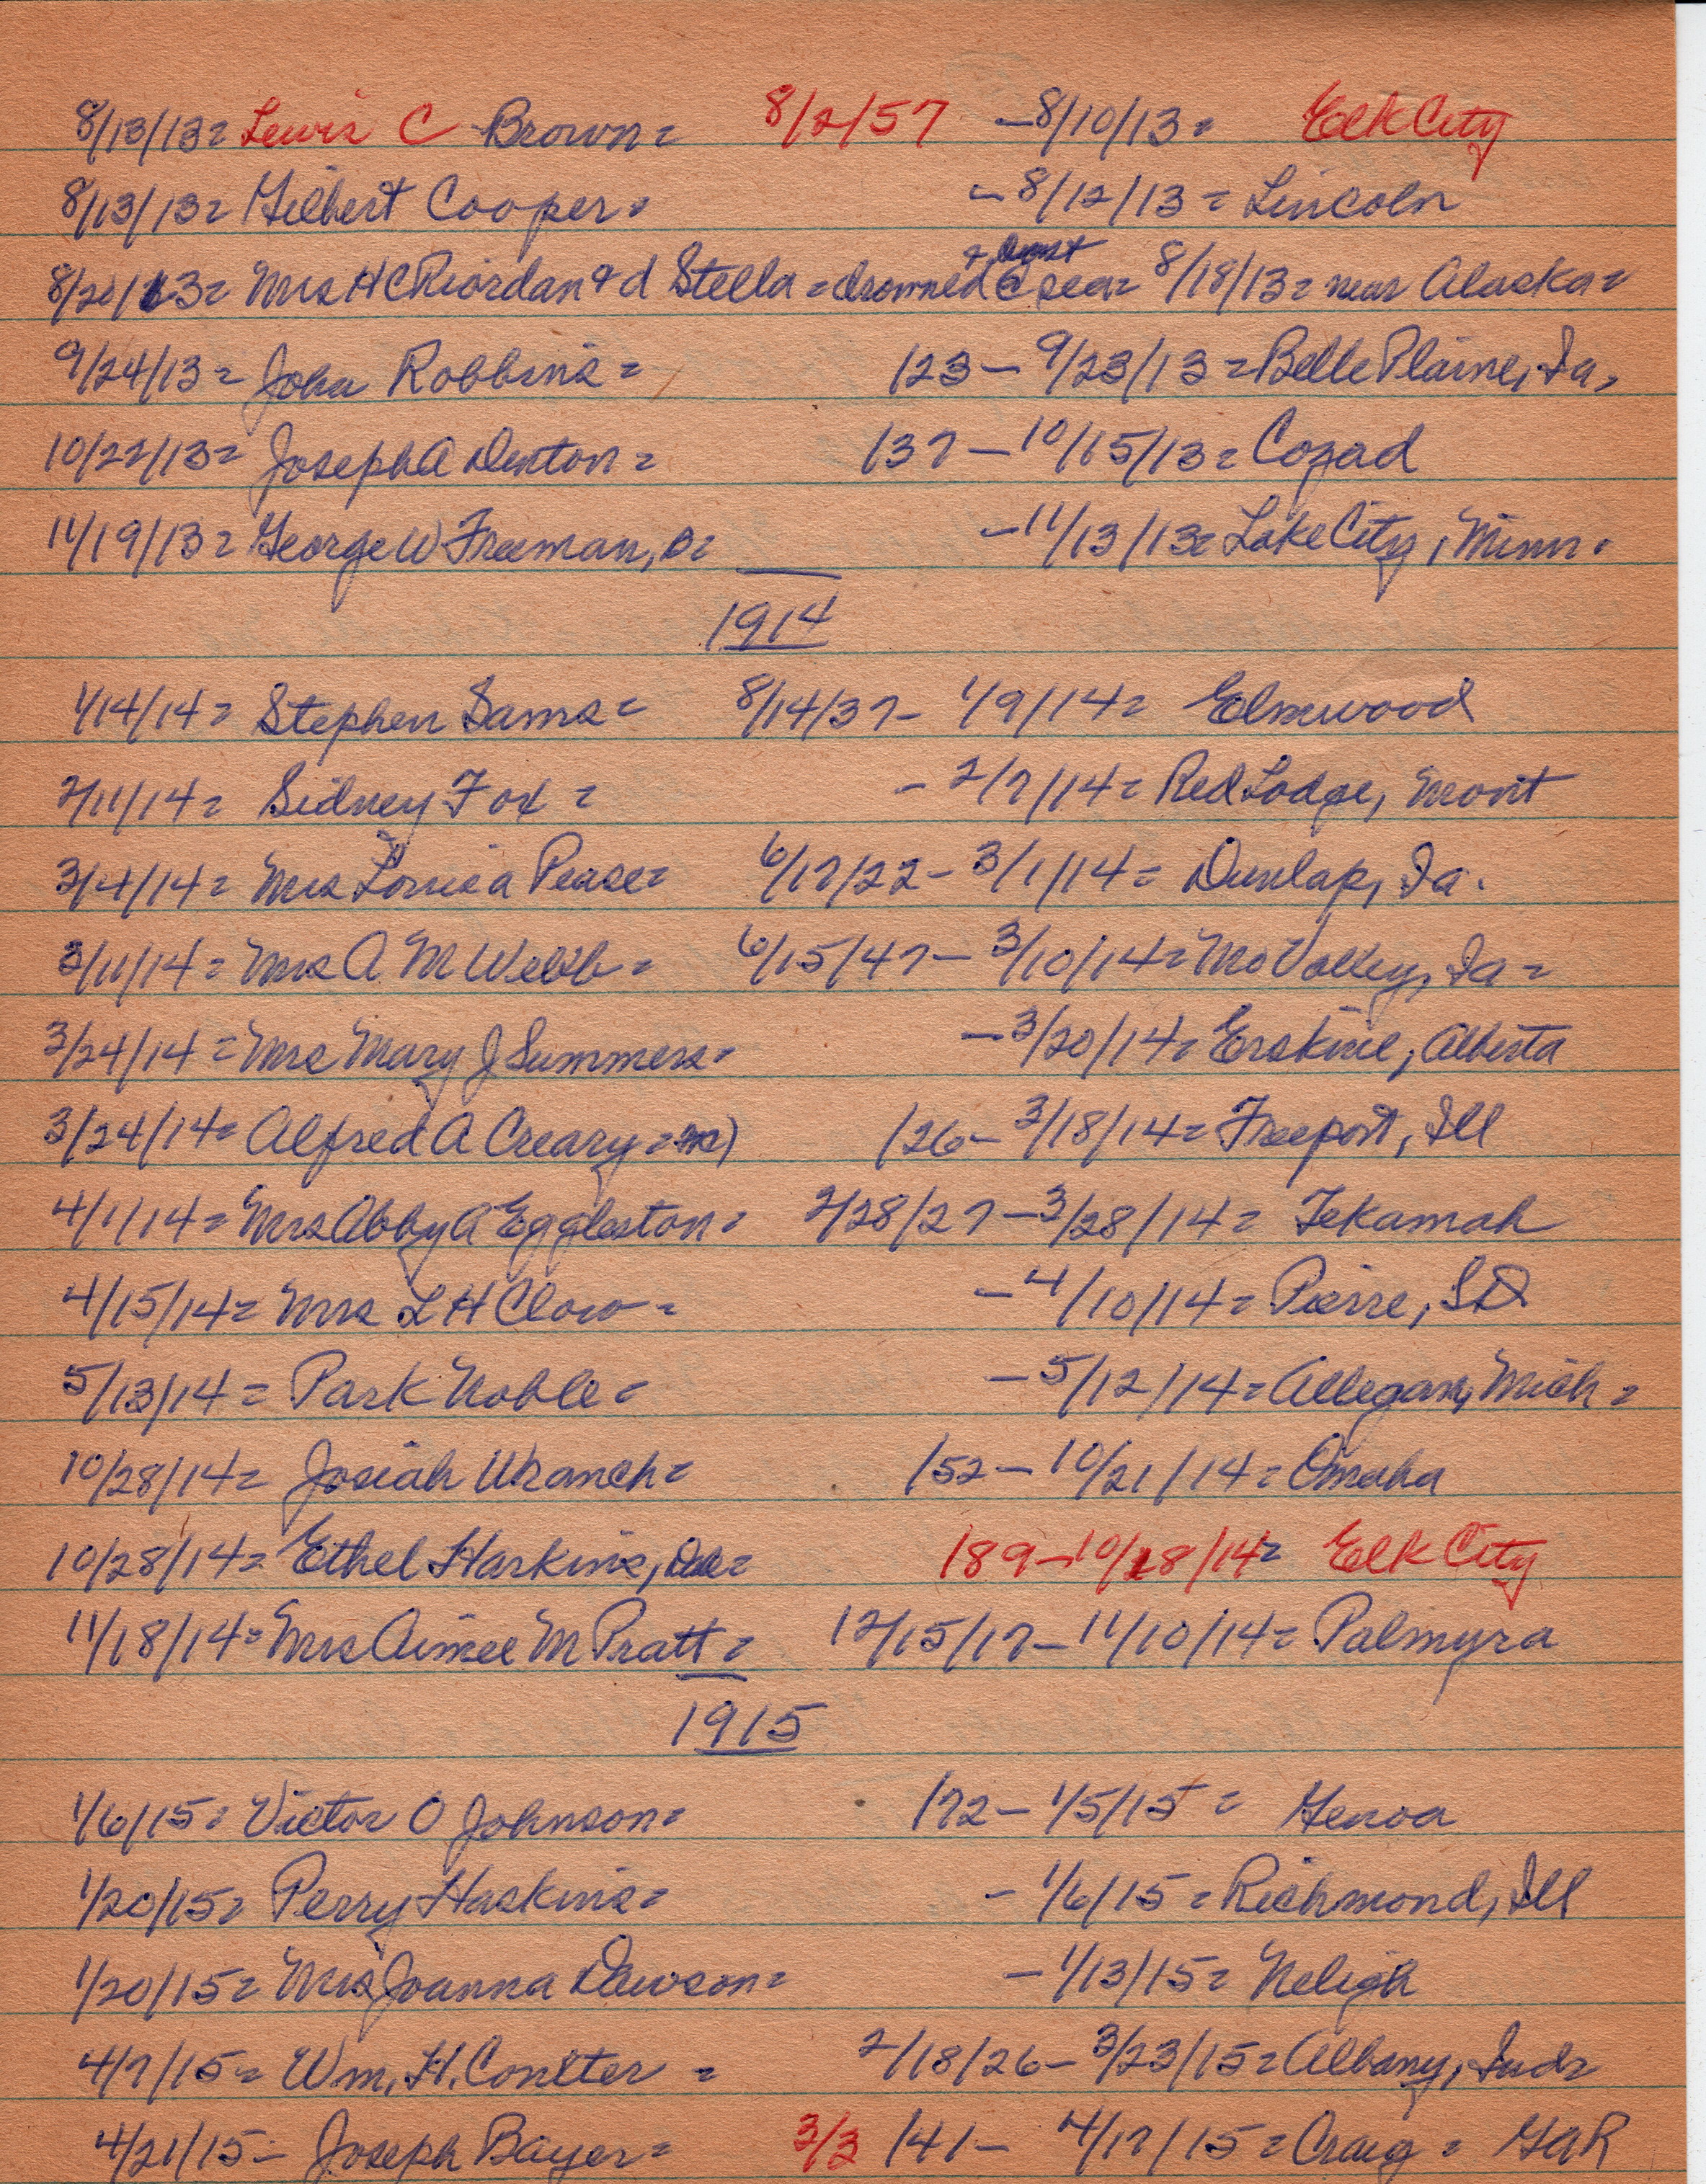 8/13/13= Lewis C Brown= 8/2/57 -8/10/13= Elk City
8/13/13= Gilbert Cooper= -8/12/13= Lincoln
8/20/13= Mrs H C Riordan & d Stella = drowned @ sea= 8/18/13= near Alaska=
9/24/13= John Robbins= /23- 9/23/13= Belle Plaine, Ia,
10/22/13= Joseph A Denton= /37- 10/15/13= Cozad
11/19/13= George W Freeman, D= -11/13/13= Lake City, Minn.
1914
1/14/14= Stephen Sams= 8/14/37- 1/9/14= Elmwood
2/11/14= Sidney Fox = - 2/7/14= Red Lodge, Mont
3/4/14= Mrs Louisa Pease= 6/17/22- 3/1/14= Dunlap, Ia.
3/11/14= Mrs A M Webb= 6/15/47- 3/10/14= Mo Valley, Ia=
3/24/14= Mrs Mary J Summers= -3/20/14= Erskine, Alberta
3/24/14= Alfred A Creary= /26- 3/18/14= Freeport, Ill
4/1/14= Mrs Abby A Eggleston= 2/28/27-3/28/14= Tekamah
4/15/14= Mrs L H Clow= -4/10/14= Pierre, SD
5/13/14= Park Noble= -5/12/14= Allegan, Mich=
10/28/14= Josiah Wranch= /52- 10/21/14= Omaha
10/28/14= Ethel Harkins, Dau= /89-10/18/14= Elk City
11/18/14= Mrs Aimee M Pratt= 12/15/17-11/10/14= Palmyra
1915
1/6/15= Victor O Johnson= /72- 1/5/15= Genoa
1/20/15= Perry Haskins= - 1/6/15= Richmond, Ill
1/20/15= Mrs Joanna Dawson= - 1/13/15= Neligh
4/7/15= Wm. H. Coulter = 2/18/26- 3/23/15= Albany, Ind=
4/21/15- Joseph Bayer= 3/3/41- 4/17/15= Craig= GAR